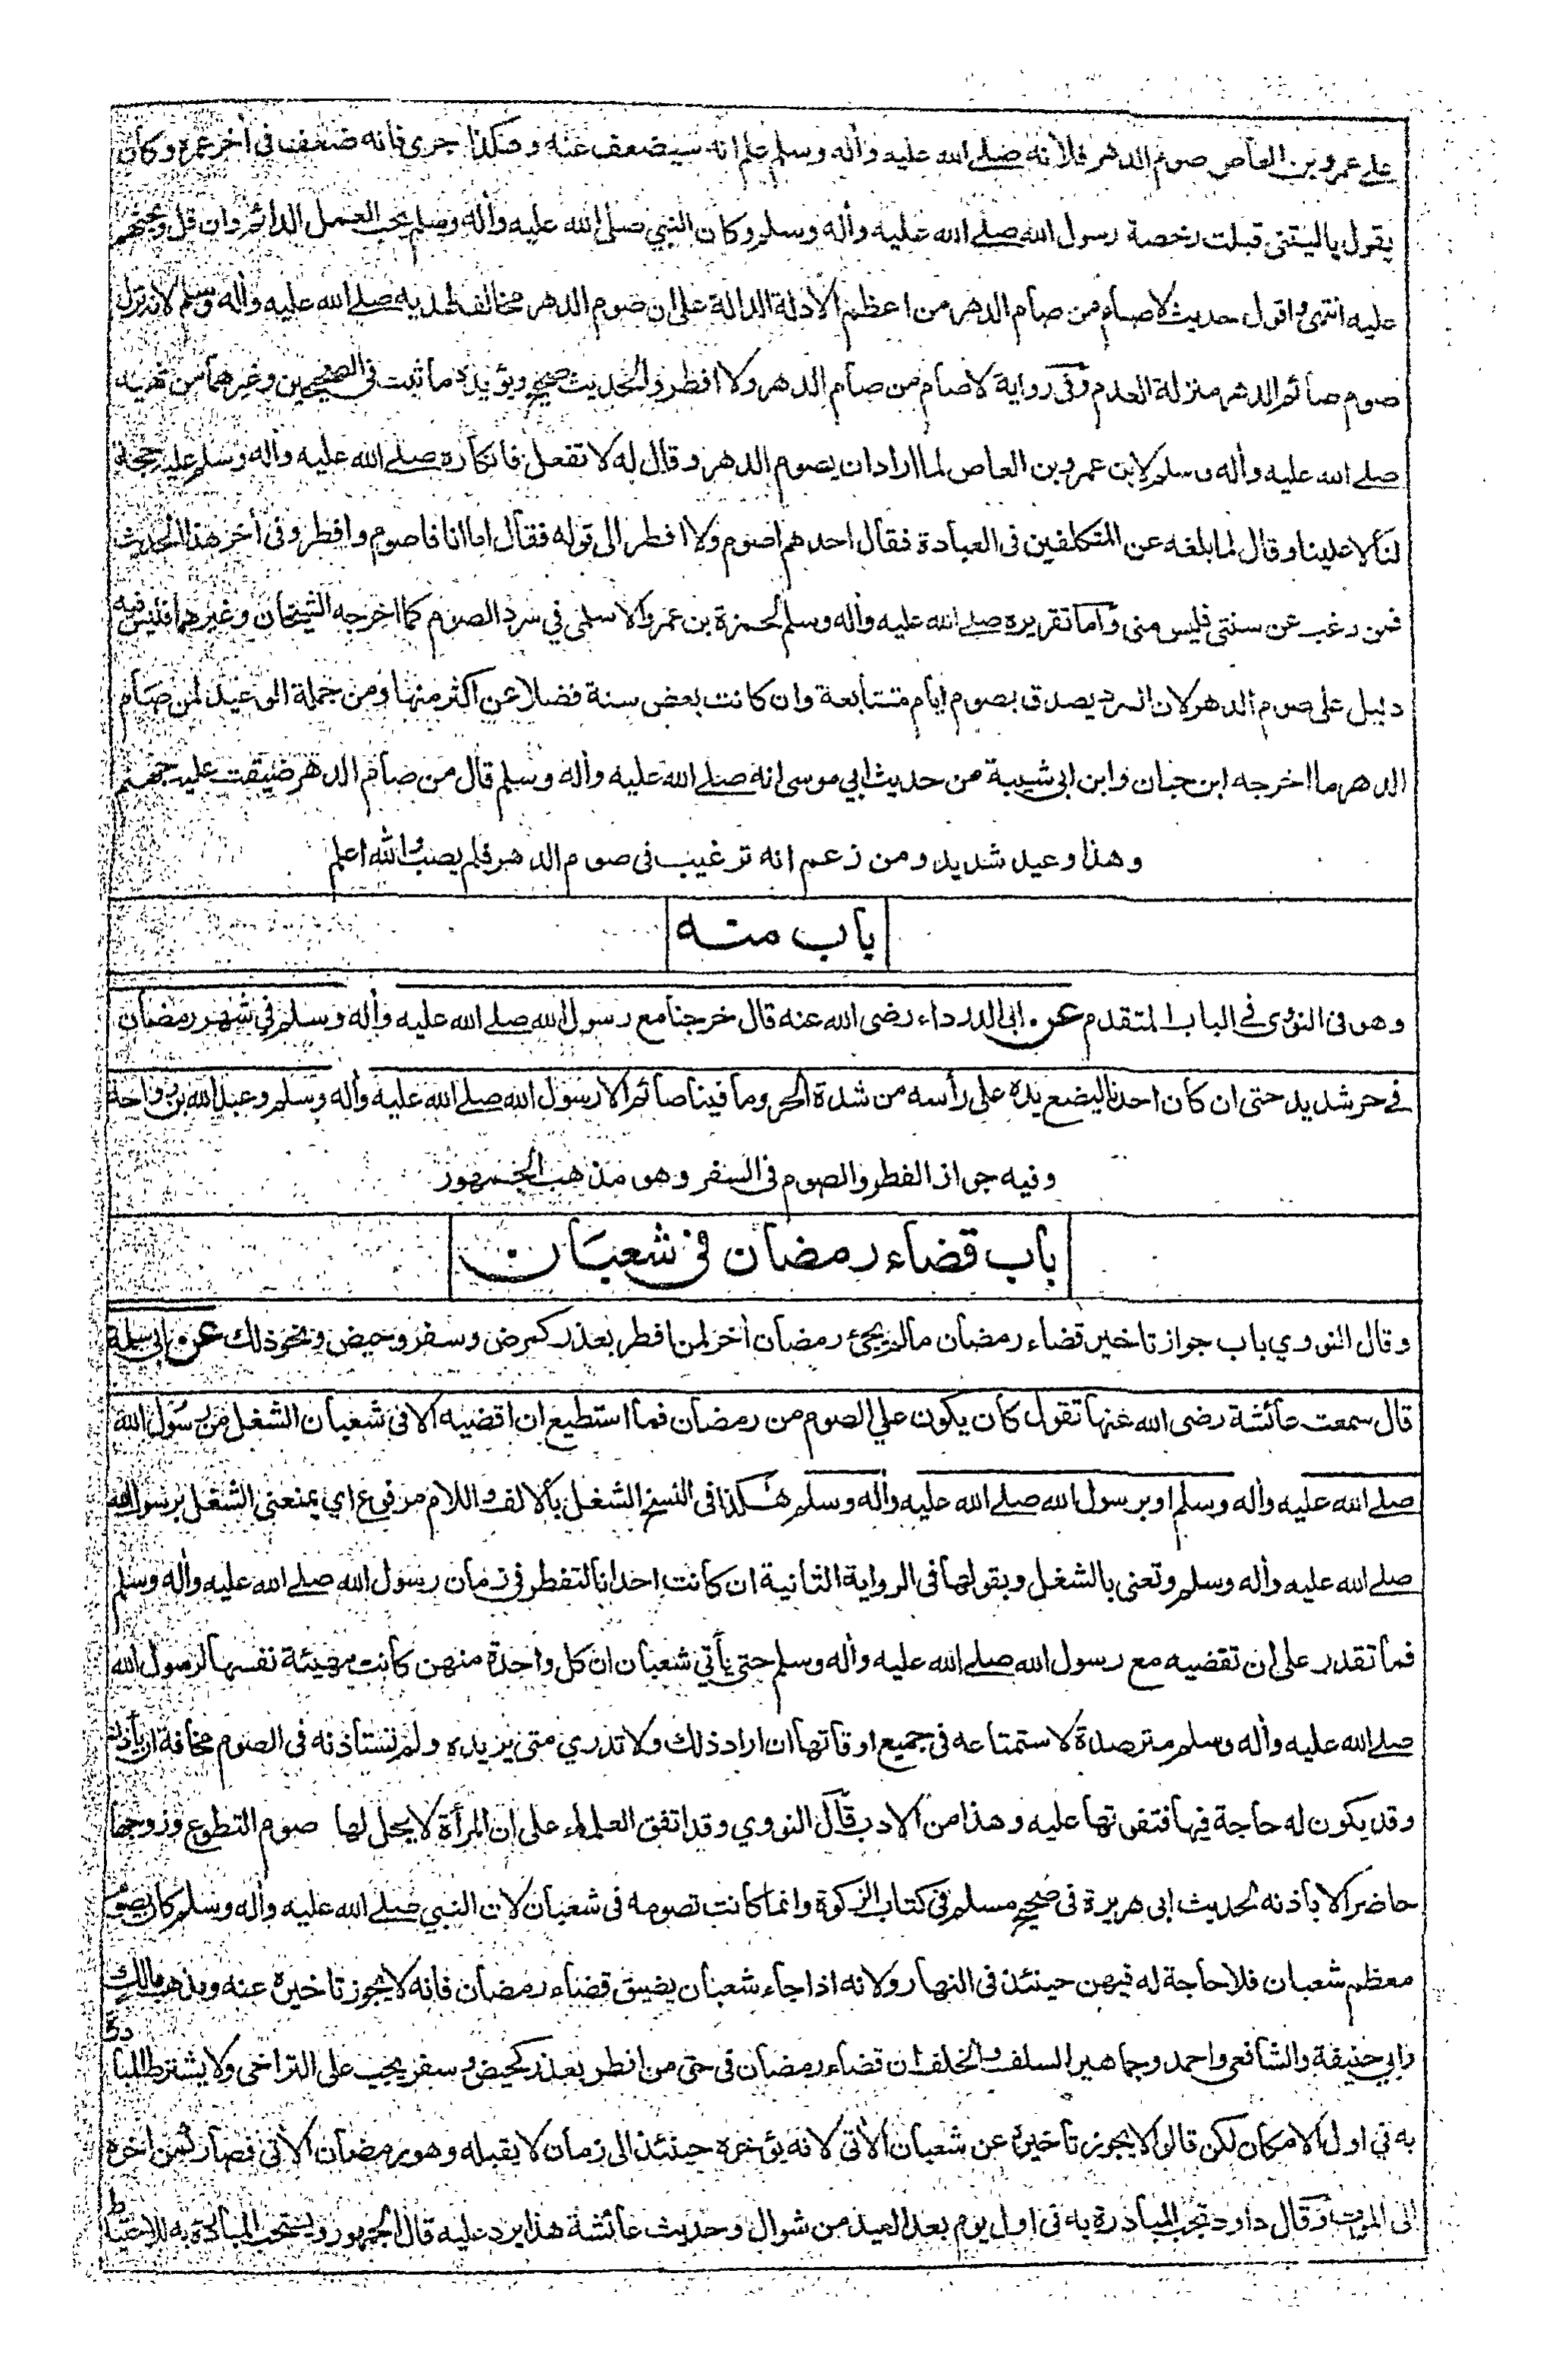 على عمرو بن العاص صوم الدهر فلانه صلى الله عليه وأله وسلم علم انه سيضعف عنه وهكذا جرى فانه ضعف فى أخر عمره وكان
يقول ياليتنى قبلت رخصة رسول الله صلى الله عليه وأله وسلم وكان النبي صلى الله عليه وأله وسلم يحب العمل الدائم وان قل ويحثهم
عليه انتهى واقول حديث لا صام من صام الدهر من اعظم الادلة الدالة على ان صوم الدهر مخالف لهديه صلى الله عليه وأله وسلم لانه نزل
صوم صائم الدهر منزلة العدم وفى رواية لا صام من صام الدهر ولا افطر والحديث صحيح ويؤيده ما ثبت فى الصحيحين وغيرهما من نهيه
صلى الله عليه وأله وسلم لابن عمرو بن العاص لما اراد ان يصوم الدهر وقال له لا تفعل فانكاره صلى الله عليه وأله وسلم عليه حجة
لنا لا علينا وقال لما بلغه عن المتكلفين فى العبادة فقال احدهم اصوم ولا افطر الى قوله فقال اما انا فاصوم وافطر وفى أخر هذا الحديث
فمن رغب عن سنتى فليس منى واما تقريره صلى الله عليه وأله وسلم لحمزة بن عمرو الاسلمى في سرد الصوم كما اخرجه الشيخان وغيرهما فليس فيه
دليل على صوم الدهر لان السرد يصدق بصوم ايام متتابعة وان كانت بعض سنة فضلا عن اكثر منها ومن جملة الوعيد لمن صام
الدهر ما اخرجه ابن حبان وابن ابى شيبة من حديث ابي موسى انه صلى الله عليه وأله وسلم قال من صام الدهر ضيقت عليه جهنم
وهذا وعيد شديد ومن زعم انه ترغيب فى صوم الدهر فلم يصب والله اعلم
باب منه
وهو فى النووى فى الباب المتقدم عن ابى الدرداء رضى الله عنه قال خرجنا مع رسول الله صلى الله عليه وأله وسلم في شهر رمضان
فى حر شديد حتى ان كان احدنا ليضع يده على رأسه من شدة الحر وما فينا صائم الا رسول الله صلى الله عليه وأله وسلم وعبد الله بن رواحة
وفيه جواز الفطر والصوم فى السفر وهو مذهب الجمهور
باب قضاء رمضان فى شعبان
وقال النووي باب جواز تاخير قضاء رمضان مالم يجئ رمضان أخر لمن افطر بعذر كمرض وسفر وحيض ونحو ذلك عن ابى سلمة
قال سمعت عائشة رضى الله عنها تقول كان يكون علي الصوم من رمضان فما استطيع ان اقضيه الا فى شعبان الشغل من رسول الله
صلى الله عليه وأله وسلم او برسول الله صلى الله عليه وأله وسلم هكذا فى النسخ الشغل بالالف واللام مرفوع اي يمنعنى الشغل برسول الله
صلى الله عليه وأله وسلم وتعنى بالشغل وبقولها فى الرواية الثانية ان كانت احدانا لتفطر فى زمان رسول الله صلى الله عليه وأله وسلم
فما تقدر على ان تقضيه مع رسول الله صلى الله عليه وأله وسلم حتى يأتي شعبان ان كل واحدة منهن كانت مهيئة نفسها لرسول الله
صلى الله عليه وأله وسلم مترصدة لاستمتاعه فى جميع اوقاتها ان اراد ذلك ولا تدري متى يريده ولم تستأذنه فى الصوم مخافة ان يأذن
وقد يكون له حاجة فيها فتفوتها عليه وهذا من الادب قال النووي وقد اتفق العلماء على ان المرأة لا يحل لها صوم التطوع وزوجها
حاضر الا بأذنه لحديث ابى هريرة فى صحيح مسلم فى كتاب الزكوة وانما كانت تصومه فى شعبان لان النبي صلى الله عليه وأله وسلم كان يصوم
معظم شعبان فلا حاجة له فيهن حينئذ فى النهار ولانه اذا جاء شعبان يضيق قضاء رمضان فانه لا يجوز تاخيره عنه ومذهب مالك
وابي حنيفة والشافعى واحمد وجماهير السلف والخلف ان قضاء رمضان فى حق من افطر بعذر كحيض وسفر يجب على التراخى ولا يشترط المبادرة
به في اول الامكان لكن قالوا لا يجوز تأخيره عن شعبان الأتى لانه يؤخره حينئذ الى زمان لا يقبله وهو رمضان الأتى فصار كمن اخره
الى الموت وقال داود تجب المبادرة به فى اول يوم بعد العيد من شوال وحديث عائشة هذا يرد عليه قال الجمهور ويستحب المبادرة به للاحتياط